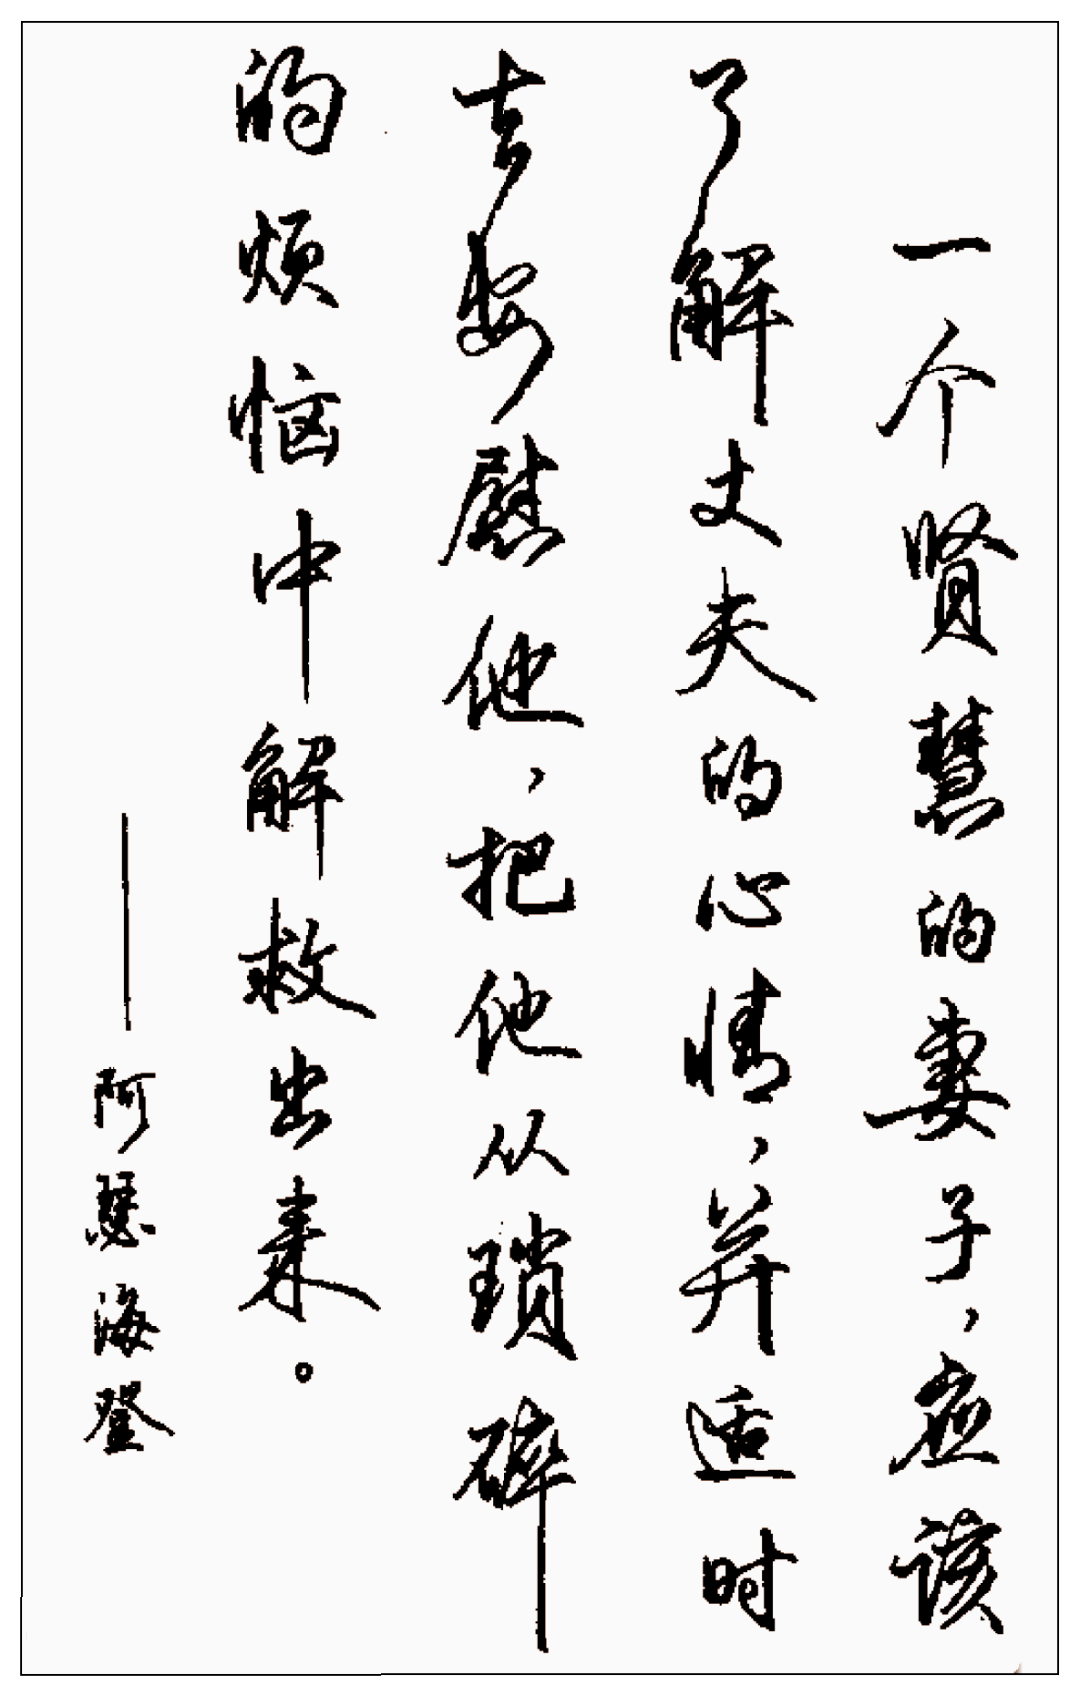 一个贤慧的妻子，应该
了解丈夫的心情，并适时
去安慰他，把他从琐碎
的烦恼中解救出来。
——阿瑟海登